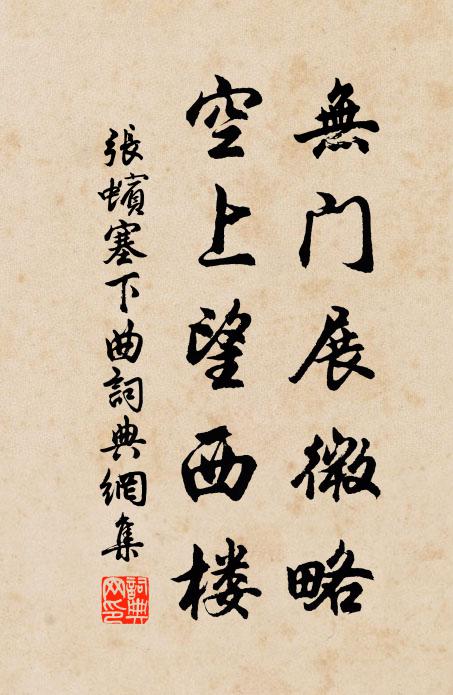 無门展微略
空上望西楼
張蠙塞下曲詞典網集
詞典
网印